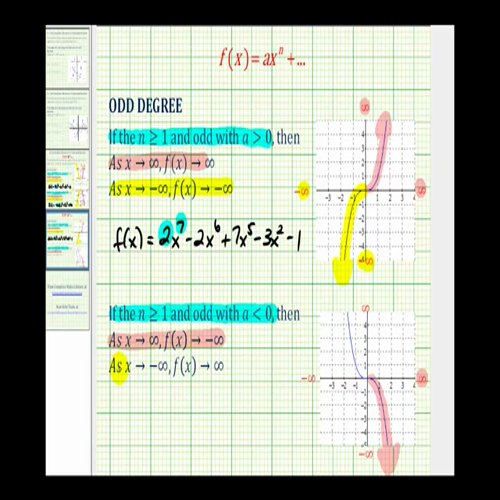 f(x) = axⁿ + ...
ODD DEGREE
If the n ≥ 1 and odd with a > 0, then
As x → ∞, f(x) → ∞
As x → −∞, f(x) → −∞
f(x) = 2x⁷ − 2x⁶ + 7x⁵ − 3x² − 1
If the n ≥ 1 and odd with a < 0, then
As x → ∞, f(x) → −∞
As x → −∞, f(x) → ∞